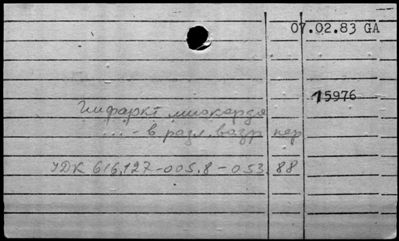 07.02.83 GA
15976
Инфаркт миокарда
... - в разл. возр. пер.
УДК 616.127-005.8-053.88